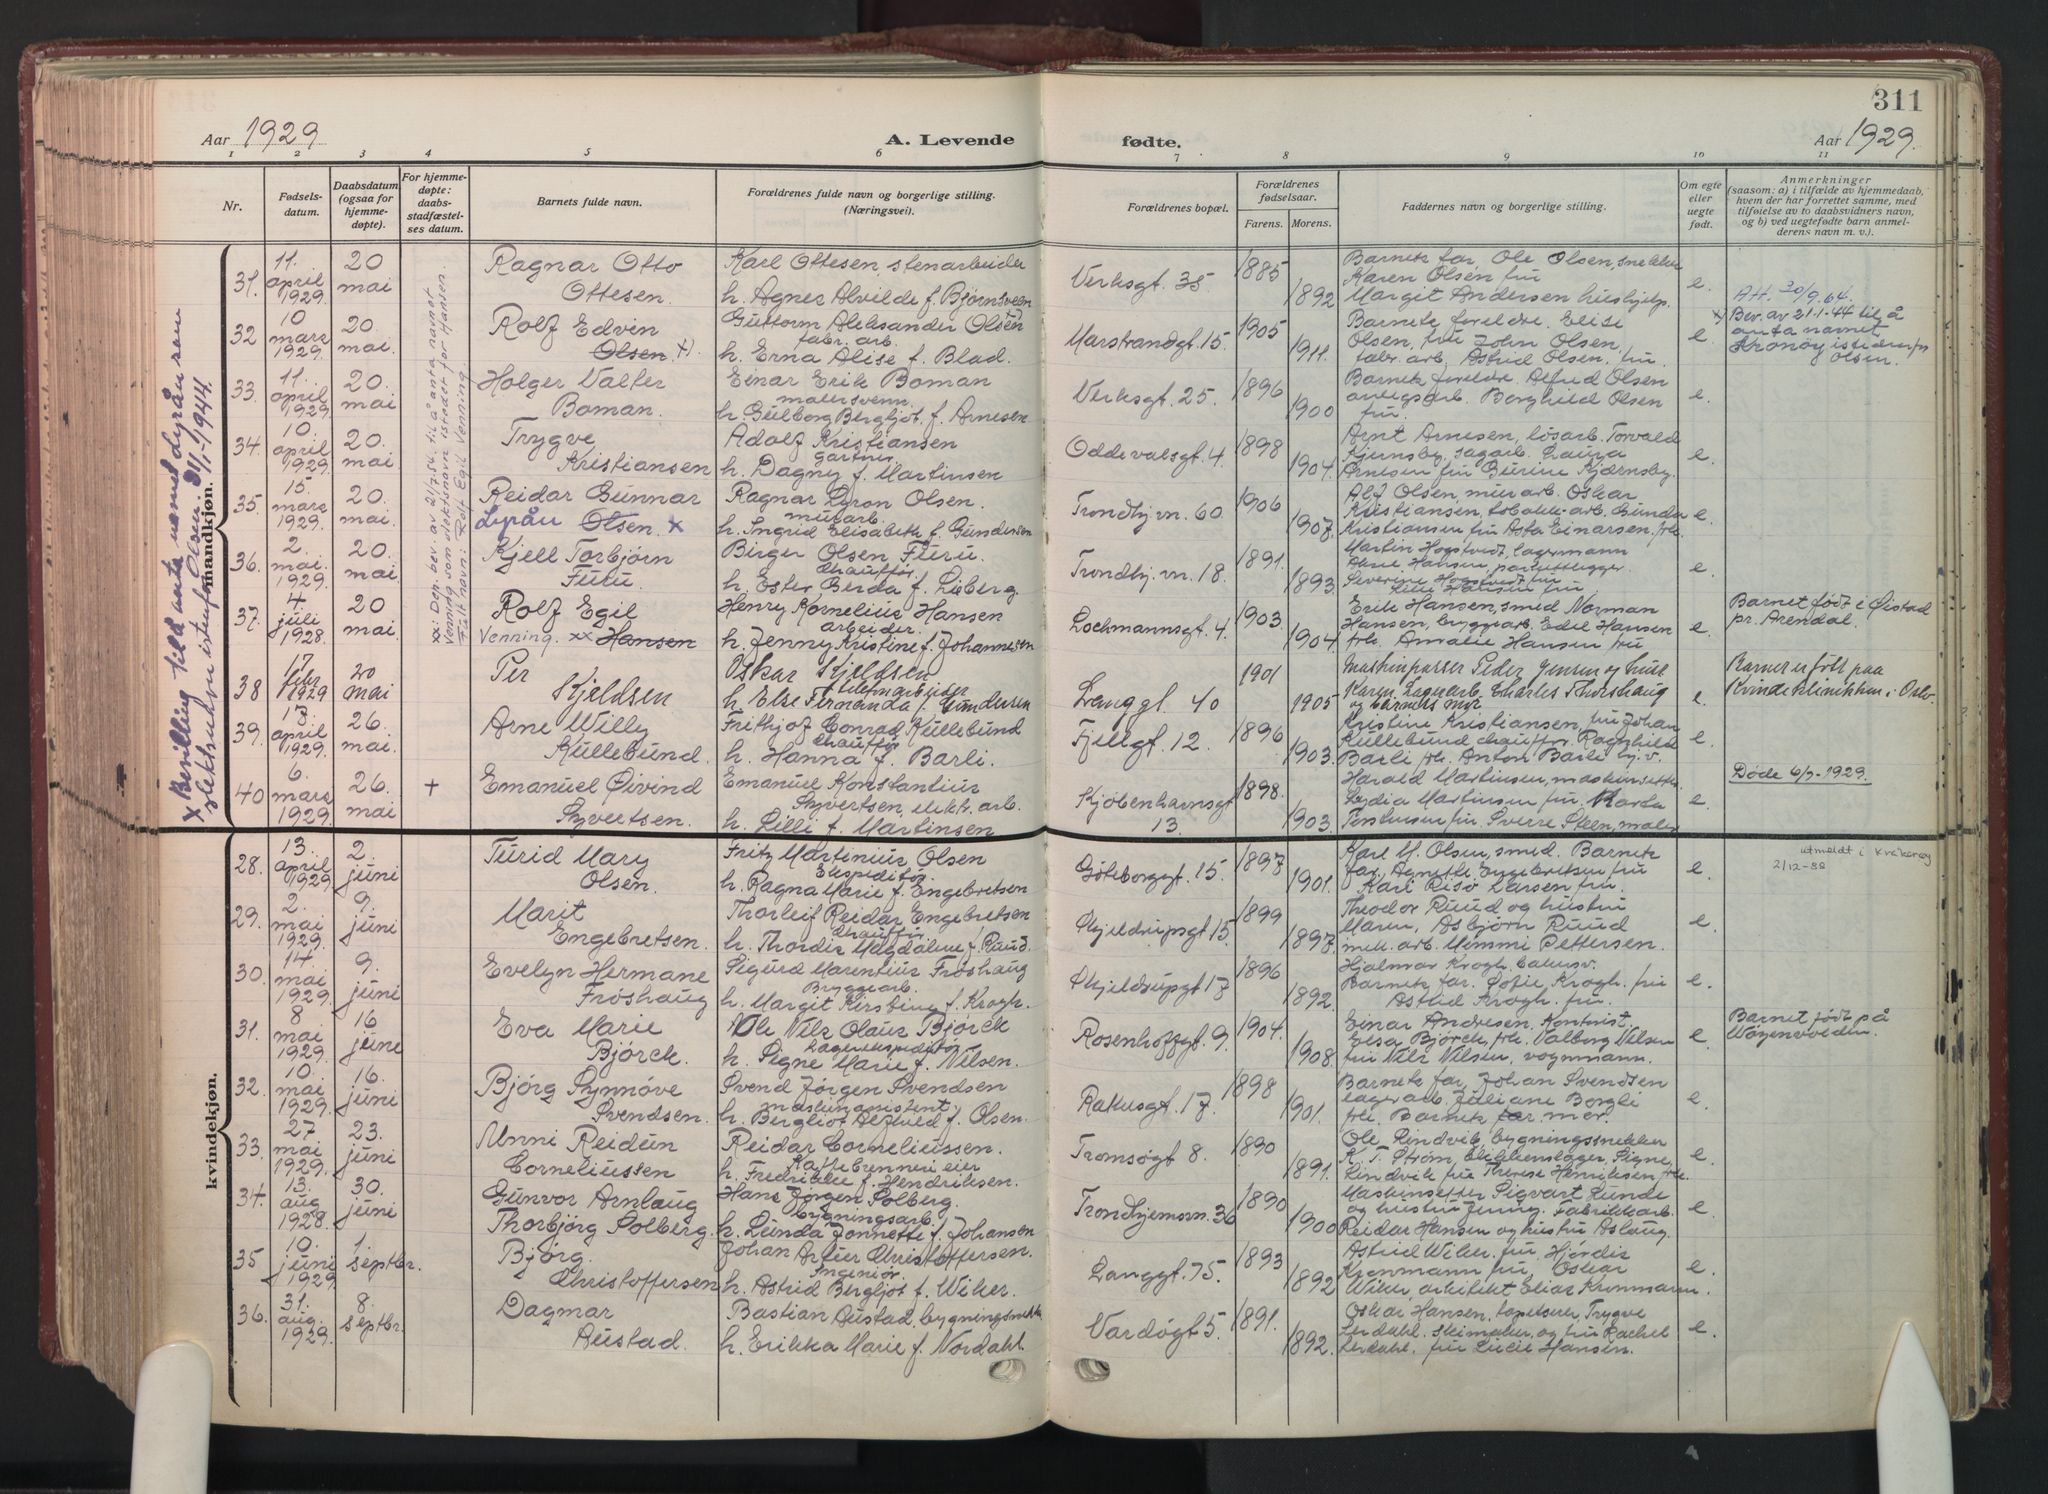 311
Aar 1929
A. Levende
fødte.
Aar 1929.
1 2 3 4 5 6 7 8 9 10 11
Nr.
Fødsels-
datum.
Daabsdatum
(ogsaa for
hjemme-
døpte).
For hjemme-
døpte:
daabs-
stadfæstel-
ses datum.
Barnets fulde navn.
Forældrenes fulde navn og borgerlige stilling.
(Næringsvei).
Forældrenes bopæl.
Forældrenes
fødselsaar.
Farens. Morens.
Faddernes navn og borgerlige stilling.
Om egte
eller
uegte
født.
Anmerkninger
(saasom: a) i tilfælde av hjemmedaab,
hvem der har forrettet samme, med
tilføielse av to daabsvidners navn,
og b) ved uegtefødte barn anmel-
derens navn m. v.).
x Bevilling til å anta navnet Lyrån som
slektsnavn istenfor Olsen. 31/1-1944.
mandkjøn.
xx: Dep. bev. av 21/7.54. til å anta navnet
Venning som slektsnavn istedet for Hansen.
Fullt navn: Rolf Egil Venning.
31. 11. april 1929. 20 mai Ragnar Otto Ottesen.
Karl Ottesen, stenarbeider
h. Agnes Alvilde f. Bjørnsveen
Verksgt. 35 1885 1892
Barnets far, Ole Olsen, snekker
Karen Olsen fru
Margit Andersen hushjelp.
e.
32 10 mars 1929. 20. mai. Rolf Edvin Olsen. x)
Guttorm Aleksander Olsen
fabr. arb.
h. Erna Alise f. Blad.
Marstrandgt. 15. 1905 1911.
Barnets foreldre. Elise
Olsen, fru John Olsen,
fabr. arb, Astrid Olsen, fru
e.
Att. 30/9.64.
x) Bev. av 21-1-44 til å
anta navnet
Kronøy istedenfor
Olsen.
33. 11. april 1929. 20. mai Holger Valter Boman.
Einar Erik Boman
malersvenn.
h. Gulborg Bergljot f. Arnesen
Verksgt. 25. 1896 1900
Barnets foreldre. Alfred Olsen
anlegsarb. Borghild Olsen
fru.
e.
34. 10. april 1929. 20. mai. Trygve Kristiansen
Adolf Kristiansen
gartner
h. Dagny f. Martinsen
Oddevalsgt. 4. 1898 1904.
Arnt Arnesen, løsarb. Torvald
Kjernsby, sagarb. Laura
Arnesen fru Gurine Kjærnsby.
e.
35. 15. mars 1929. 20. mai. Reidar Gunnar
Lyrån Olsen. x
Ragnar Lyron Olsen.
murarb.
h. Ingrid Elisabeth f. Gundersen
Trondhj.vn. 60. 1906 1907.
Alf Olsen, murarb. Oskar
Kristiansen, tobakk-arb. Gunda
Kristiansen fru Asta Einarsen, frk.
e.
36. 2. mai. 1929. 20. mai. Kjell Torbjørn Furu.
Birger Olsen Furu.
Chauffør
h. Ester Berda f. Lieberg.
Trondhj. vn. 18. 1891. 1893.
Martin Hogstvedt, lagermann
Arne Hansen, parkettlegger
Severine Hogstvedt fru
Lilli Hansen fru
e.
37. 4 juli 1928. 20 mai Rolf Egil
Venning. xx Hansen
Henry Kornelius Hansen
arbeider.
h. Jenny Kristine f. Johannesen
Lochmannsgt. 4. 1903. 1904.
Erik Hansen, smed Norman
Hansen, byggearb. Edel Hansen
frk. Amalie Hansen fru
e.
Barnet født i Øistad
pr. Arendal.
38 17 febr 1929 20 mai Per Kjeldsen
Oskar Kjeldsen
telefonarbeider
h. Else Fernanda f. Gundersen
Langgt. 40 1901 1905
Maskinpasser Peder Jensen og hust
Karen, Lagerarb. Charles Thorshaug
og barnets mor
e.
Barnet er født paa
Kvindeklinikken i Oslo.
39. 13. april 1929. 26. mai Arne Willy Kullebund.
Frithjof Conrad Kullebund
Chauffør
h. Hanna f. Barli.
Fjellgt. 12. 1896 1903.
Kristine Kristiansen, fru Johan
Kullebund chauffør, Ragnhild
Barli frk. Anton Barli
e.
40 6. mars 1929 26. mai + Emanuel Øivind Syvertsen.
Emanuel Konstantius
Syvertsen, elektr. arb.
h. Lilli f. Martinsen
Kjøbenhavnsgt 13. 1898. 1903.
Harald Martinsen, maskinsetter
Lydia Martinsen fru. Karda
Torstensen fru. Sverre Steen, maler
e.
Døde 6/7-1929.
kvindekjøn.
28. 13. april 1929 2. juni Turid Mary Olsen.
Fritz Martinius Olsen
Ekspeditør
h. Ragna Marie f. Engebretsen
Gøteborggt. 15. 1897 1901.
Karl M. Olsen, smed. Barnets
far, Agnethe Engebretsen fru
Karl Risø Larsen fru.
e.
utmeldt i Kråkerøy
2/12-88
29. 2. mai 1929. 9. juni Marit Engebretsen.
Thorleif Reidar Engebretsen
Chauffør
h. Thordis Magdalene f. Ruud.
Skjeldrupsgt 15. 1899 1897.
Theodor Ruud og hustru
Maren, Asbjørn Ruud
mek. arb. Mimmi Pettersen.
e.
30. 14 mai 1929 9. juni Evelyn Hermane Frøshaug
Sigurd Marentius Frøshaug
Byggearb.
h. Margit Kirstine f. Krogh.
Skjeldrupgt 17 1896 1892.
Hjalmar Krogh
Barnets far. Sofie Krogh. fru
Astrid Krogh. fru.
e.
31. 8 mai 1929. 16 juni Eva Marie Bjørck.
Ole Nils Olaus Bjørck
Lagerekspeditør
h. Signe Marie f. Nilsen.
Rosenhoffgt. 9. 1904. 1908.
Einar Andresen. Kontorist
Elsa Bjørck, frk. Valborg Nilsen
fru Nils Nilsen, vognmann.
e.
Barnet født på
32. 10. mai 1929. 16. juni Bjørg Synnøve Svendsen.
Svend Jørgen Svendsen
maskinassistent
h. Bergliot Alfhild f. Olsen.
Rakusgt. 17. 1898 1901.
Barnets far, Johan Svendsen
lagerarb. Juliane Borgli
frk. Barnets far. mor.
e.
33. 27 mai 1929. 23. juni Unni Reidun Corneliussen
Reidar Corneliussen.
Kaffebrenneri eier
h. Fredrikke f. Hendriksen.
Tromsøgt 8. 1890 1891.
Ole Lindvik, bygningssnekker
K. T. Strøm, blikkenslager, Signe
Lindvik fru Therese Henriksen frk.
e.
34. 13. aug 1928. 30. juni Gunvor Arnlaug
Thorbjørg Solberg.
Hans Jørgen Solberg.
bygningsarb.
h. Lunda Jonnette f. Johansen
Trondhjemsvn. 36 1890 1900
Maskinsetter Sigvart Lunde
og hustru Jenny. Fabrikkarb.
Reidar Hansen og hustru Aslaug.
e.
35 10. juni 1929. 1. septbr. Bjørg. Christoffersen
Johan Artur Christoffersen.
Ingeniør
h. Astrid Bergljot f. Wiker.
Langgt. 75. 1893 1892
Astrid Wiker, fru Hjørdis
Kronmann fru, Oskar
Wiker, arkitekt Elias Kronmann.
e.
36. 31. aug. 1929. 8. septbr. Dagmar Austad.
Bastian Austad, bygningsnekker
h. Erikka Marie f. Nordahl.
Vardøgt 5. 1891. 1892.
Oskar Hansen, tapetserer, Trygve
Lerdahl. skomaker, og fru Rachel
Lerdahl. fru Lucie Hansen.
e.